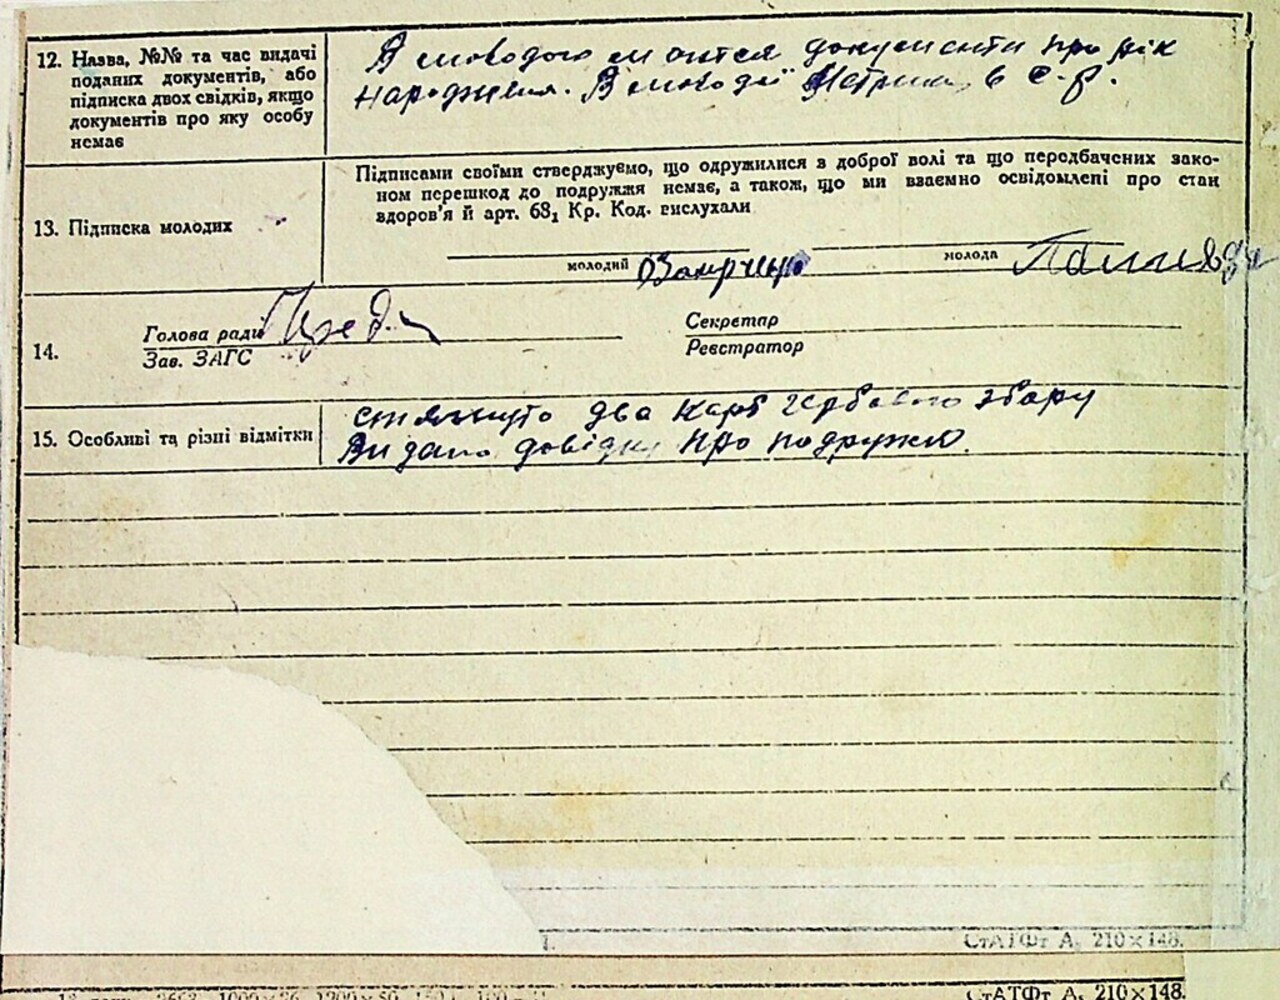 12. Назва, №№ та час видачі
поданих документів, або
підписка двох свідків, якщо
документів про яку особу
немає
В молодого документи про рік
народження. В молодої в с-р.
13. Підписка молодих
Підписами своїми стверджуємо, що одружилися з доброї волі та що передбачених зако-
ном перешкод до подружжя немає, а також, що ми взаємно освідомлені про стан
здоров'я й арт. 68₁ Кр. Код. вислухали
молодий
молода
14.
Голова ради
Зав. ЗАГС
Секретар
Реєстратор
15. Особливі та різні відмітки
стягнуто два карб гербового збору
Видано довідку про подружжя.
СтАТФт А₅ 210×148.
СтАТФт А₅ 210×148.